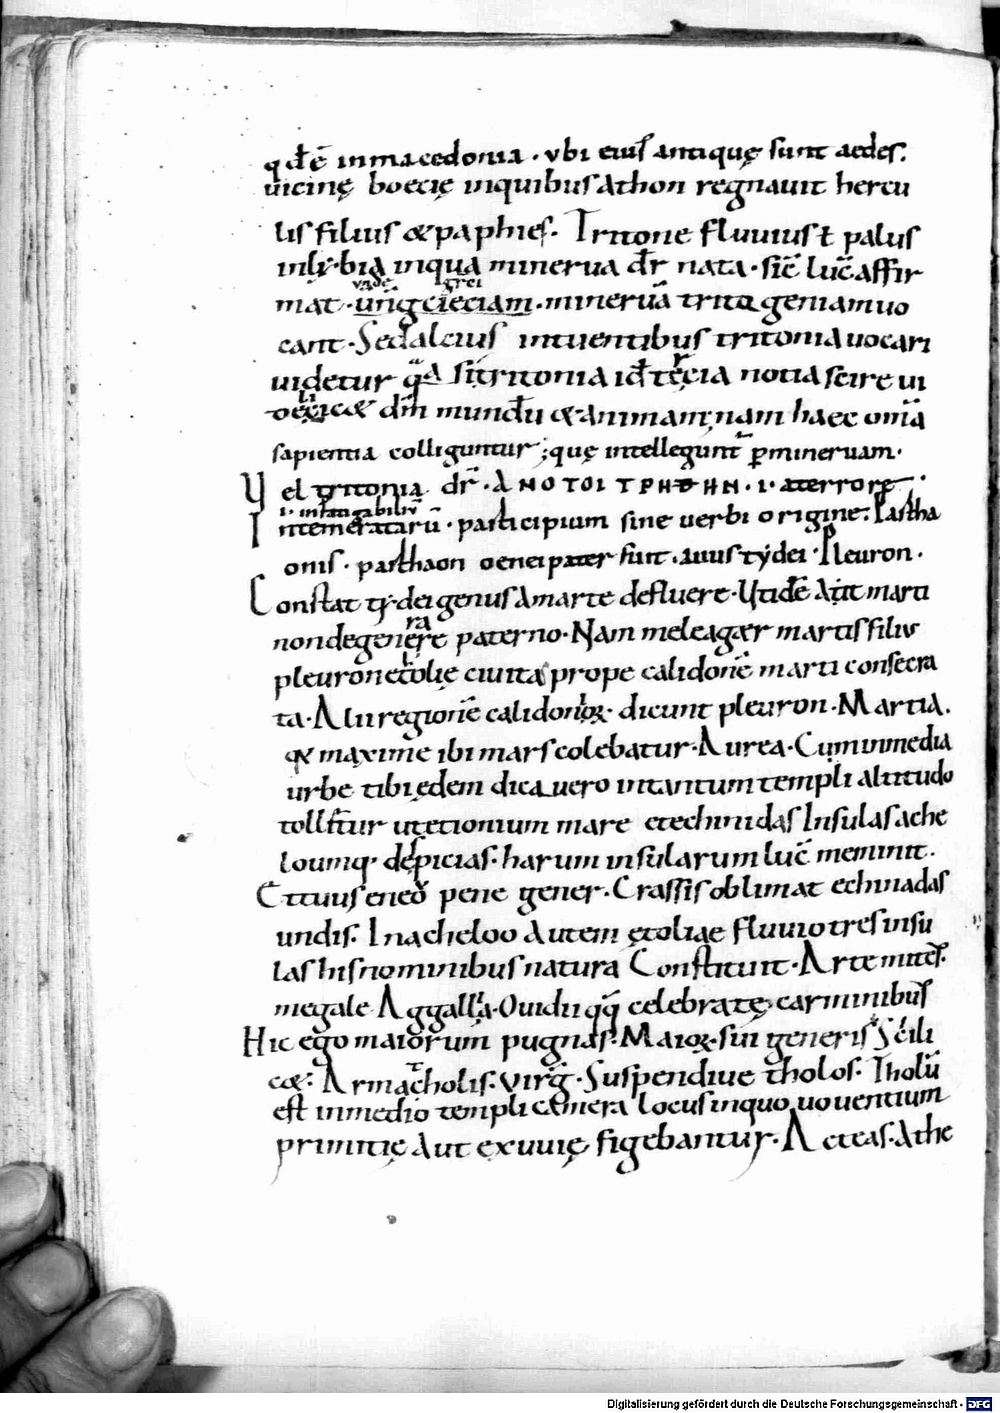 qd ē in macedonia · ubi eius antiquę sunt aedes.
uicinę boecię inquibus athon regnauit hercu
lis filius & paphies. Tritone fluuius ł palus
inlybia inqua minerua dr̄ nata · sic̄ luc̄ affir
mat · mineruā trito geniam uo
cant · Sed alcius intuentibus tritonia uocari
uidetur q̄a sit tritonia id ē tercia notia scire ui
d̄m mundū & animam nam haec om̄a
sapientia colliguntur ; quę intellegunt̄ p mineruam ·
Vel tritonia dr̄ · ΑΠΟ ΤΟΙ ΤΡΗΘΗΝ · i · aterrore ·
i · infatigabiliū
Intemeratarū · participium sine uerbi origine. Partha
onis · parthaon oenei pater fuit · auus tydei · Pleuron ·
Constat tydei genus amarte defluere · Ut id ē Ait marti
non degenere paterno · Nam meleager martis filius
pleuron etolię ciuitas prope calidonē marti consecra
ta · Alii regionē calidonior · dicunt pleuron · Martia.
q maxime ibi mars colebatur · Aurea · Cum in media
urbe tibi ędem dica uero in tantum templi altitudo
tolletur ut et ionium mare et echinidas Insulas ache
loumq · despicias · harum insularum luc̄ meminit.
Et tuus eneo pene gener · Crassis oblimat echinadas
undis. In acheloo autem ętoliae fluuio tres insu
las his nominibus natura Constituit · Artemites.
megale Aggalla · Ouidii qq celebratę carminibus
Hic ego maiorum pugnas. Maior · sui generis Scili
c&. Armacholis. virg̅ · Suspendiue tholos. Tholū
est in medio templi camera locus in quo uouentium
primitię aut exuuię figebantur. Acteas. Athe
Digitalisierung gefördert durch die Deutsche Forschungsgemeinschaft - DFG